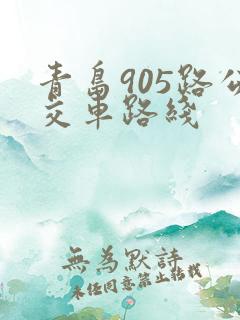 青島905路公
交車路綫
無為默詩
未经同意禁止转载